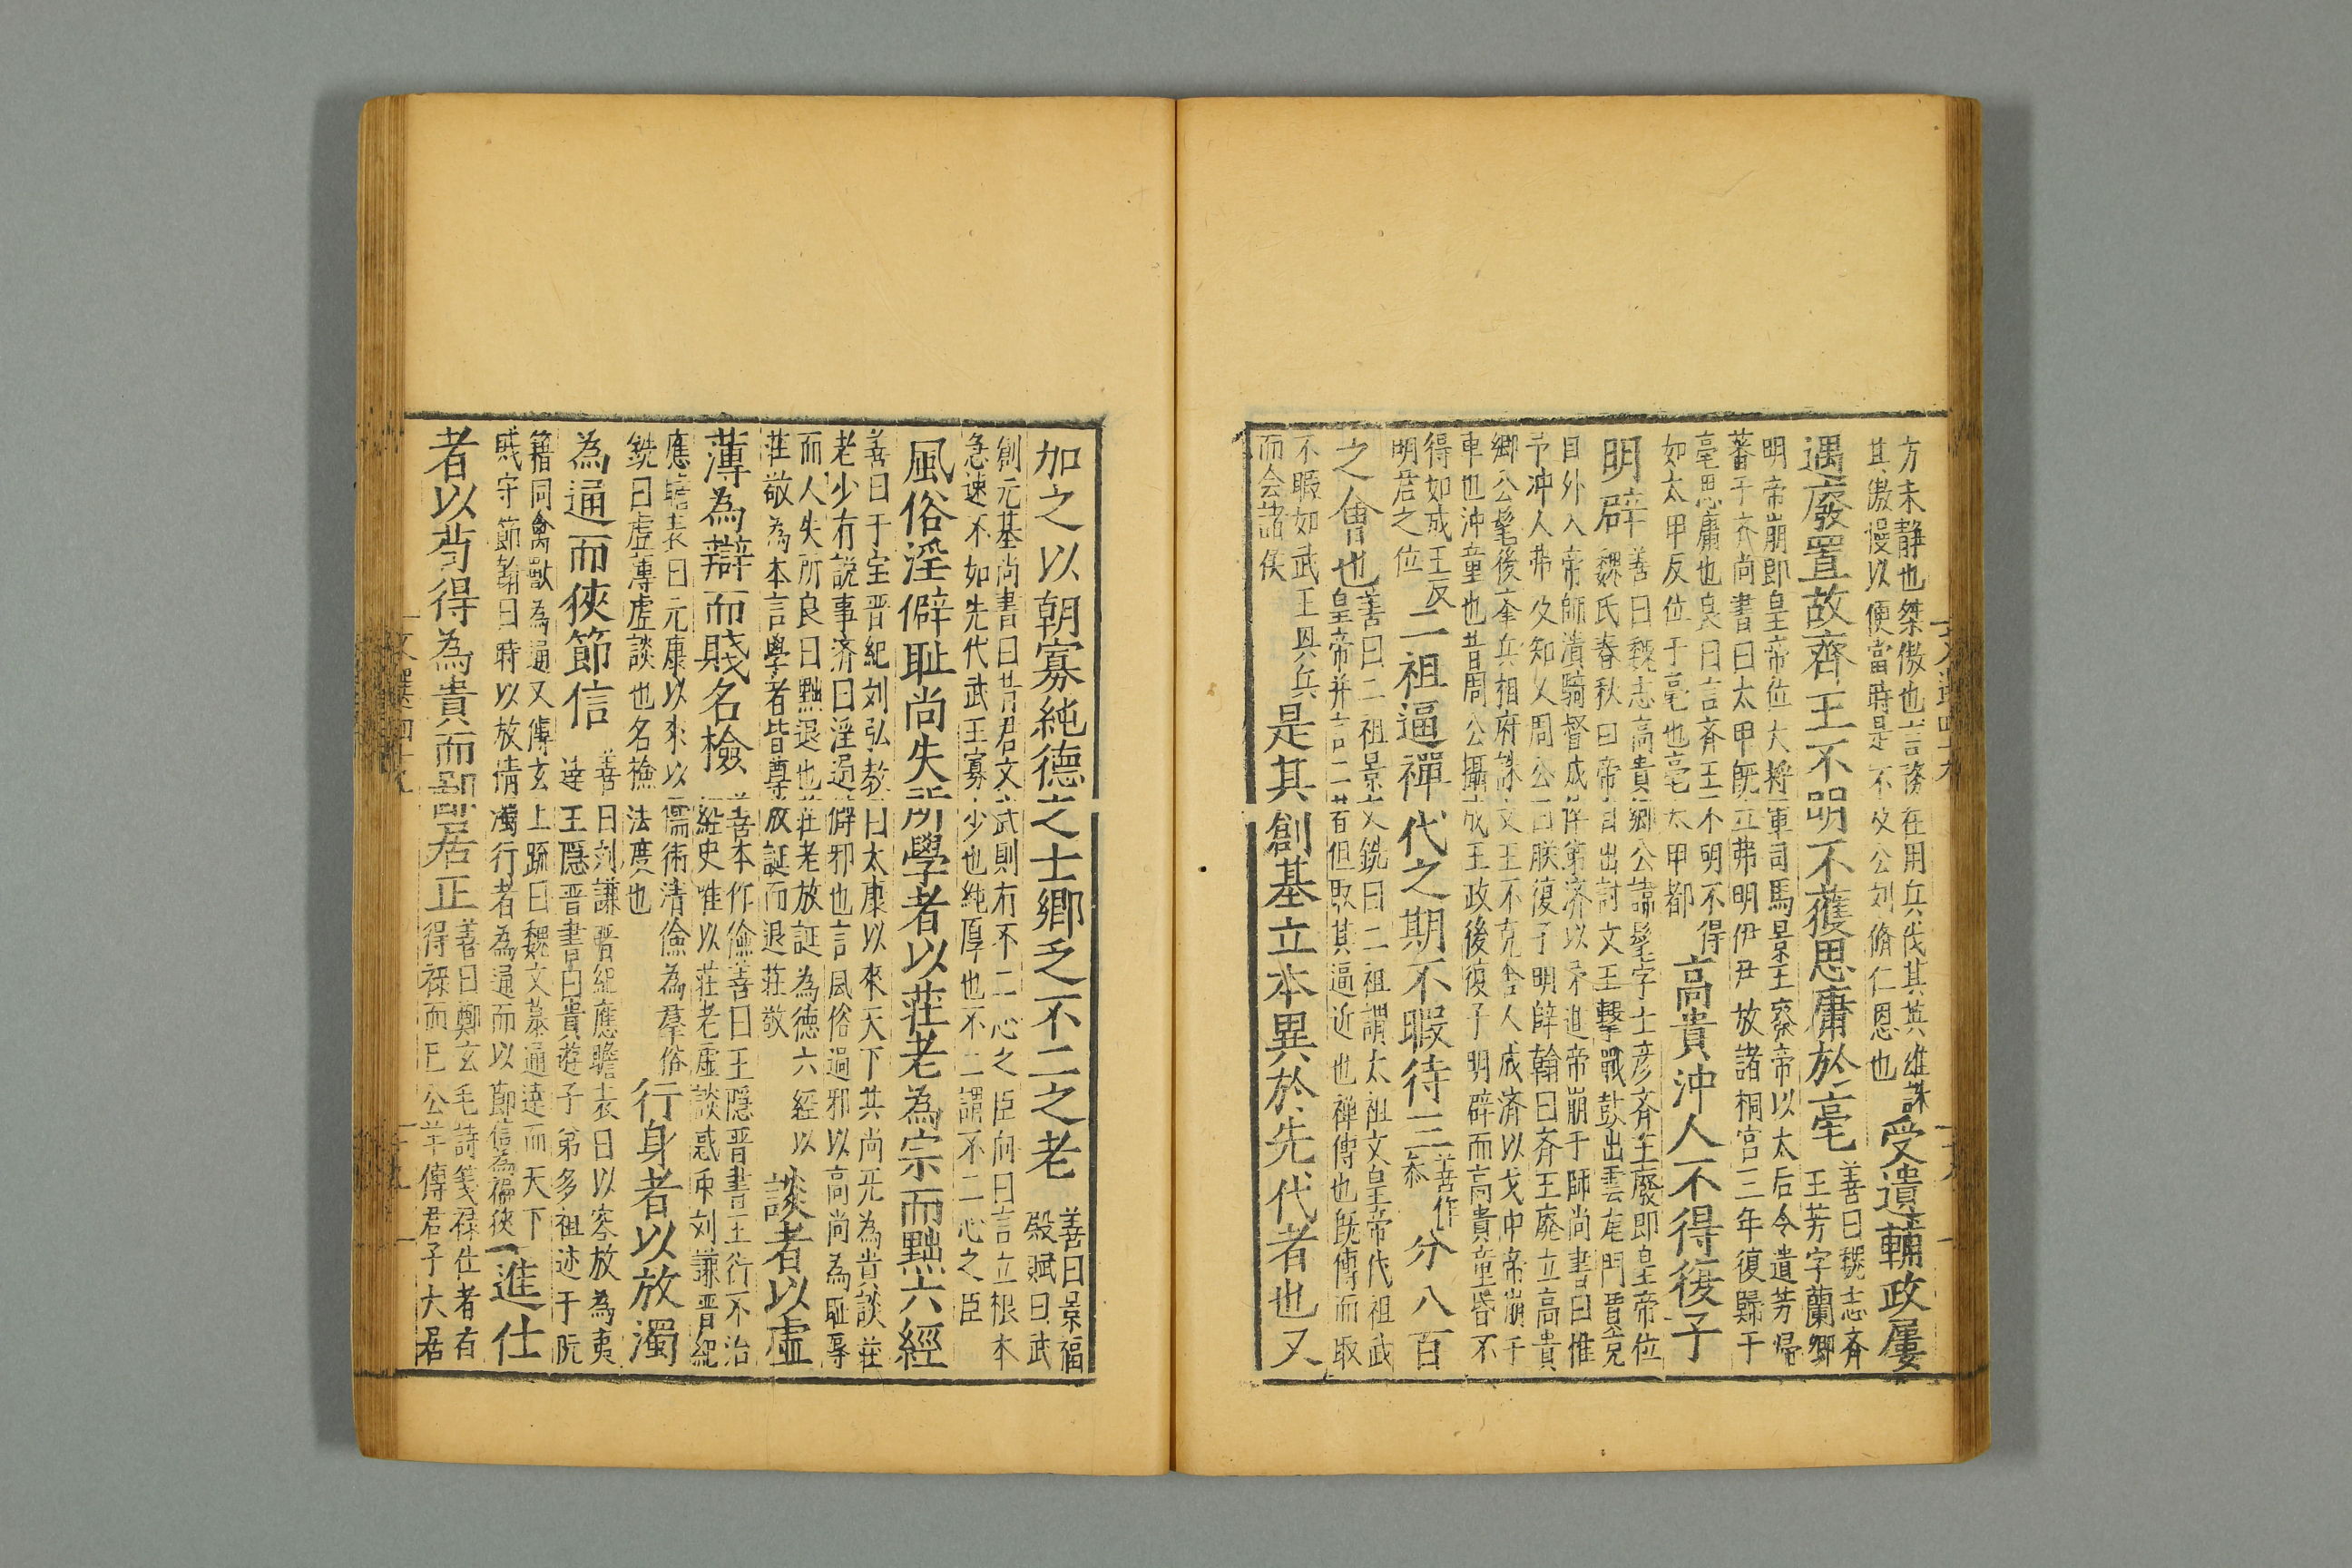 方未静也桀傲也言務在用兵伐其英雄誅
其傲慢以便當時是不及公刘脩仁恩也
受遺輔政屢
遇廢置故齊王不明不獲思庸於亳
善曰魏志斉
王芳字蘭卿
明帝崩即皇帝位大將軍司馬景王廢帝以太后令遺芳帰
蕃于斉尚書曰太甲既立弗明伊尹放諸桐宮三年復歸于
亳思庸也良曰言斉王不明不得
如太甲反位于亳也亳太甲都
高貴沖人不得復子
明辟
善曰魏志高貴鄉公諱髦字士彦斉王廢即皇帝位
魏氏春秋曰帝自出討文王擊戰鼓出雲龍門賈充
自外入帝師潰騎督成倅弟濟以矛進帝崩于師尚書曰惟
予冲人弗及知又周公曰朕復子明辟翰曰斉王廢立高貴
鄉公髦後率兵相府誅文王不克舍人成済以戈中帝崩于
車也沖童也昔周公攝成王政後復子明辟而高貴童昏不
得如成王反
明君之位
二祖逼禪代之期不暇待三
善作
叅
分八百
之會也
善曰二祖景文銑曰二祖謂太祖文皇帝代祖武
皇帝并言二者但取其逼近也禅傳也既傳而取
不暇如武王興兵
而会諸侯
是其創基立本異於先代者也又
加之以朝寡純德之士鄉乏不二之老
善曰景福
殿賦曰武
創元基尚書曰昔君文武則有不二心之臣向曰言立根本
急速不如先代武王寡少也純厚也不二謂不二心之臣
風俗淫僻耻尚失所學者以莊老為宗而黜六經
善曰干宝晋紀刘弘教曰太康以來天下共尚无為貴談莊
老少有說事済曰淫過僻邪也言風俗過邪以高尚為耻辱
而人失所良曰黜退也莊老放誕為德六經以
莊敬為本言學者皆尊放誕而退莊敬
談者以虛
薄為辯而賤名檢
善本作儉善曰王隱晋書王衍不治
經史唯以莊老虛談惑衆刘謙晋紀
應瞻表曰元康以來以儒術清儉為羣俗
銑曰虛薄虛談也名檢法度也
行身者以放濁
為通而狹節信
善曰刘謙晋紀應瞻表曰以容放為夷
達王隱晋書曰貴遊子弟多祖述于阮
籍同禽獸為通又傅玄上疏曰魏文慕通達而天下
賎守節翰曰時以放情濁行者為通而以節信為褊狹
進仕
者以苟得為貴而鄙居正
善曰鄭玄毛詩箋祿仕者有
得祿而已公羊傳君子大居